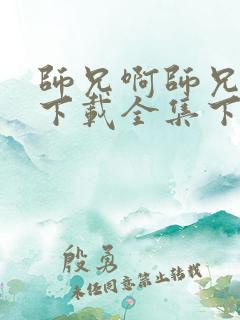 師兄啊師兄
下載全集下
殷勇
未经同意禁止转载